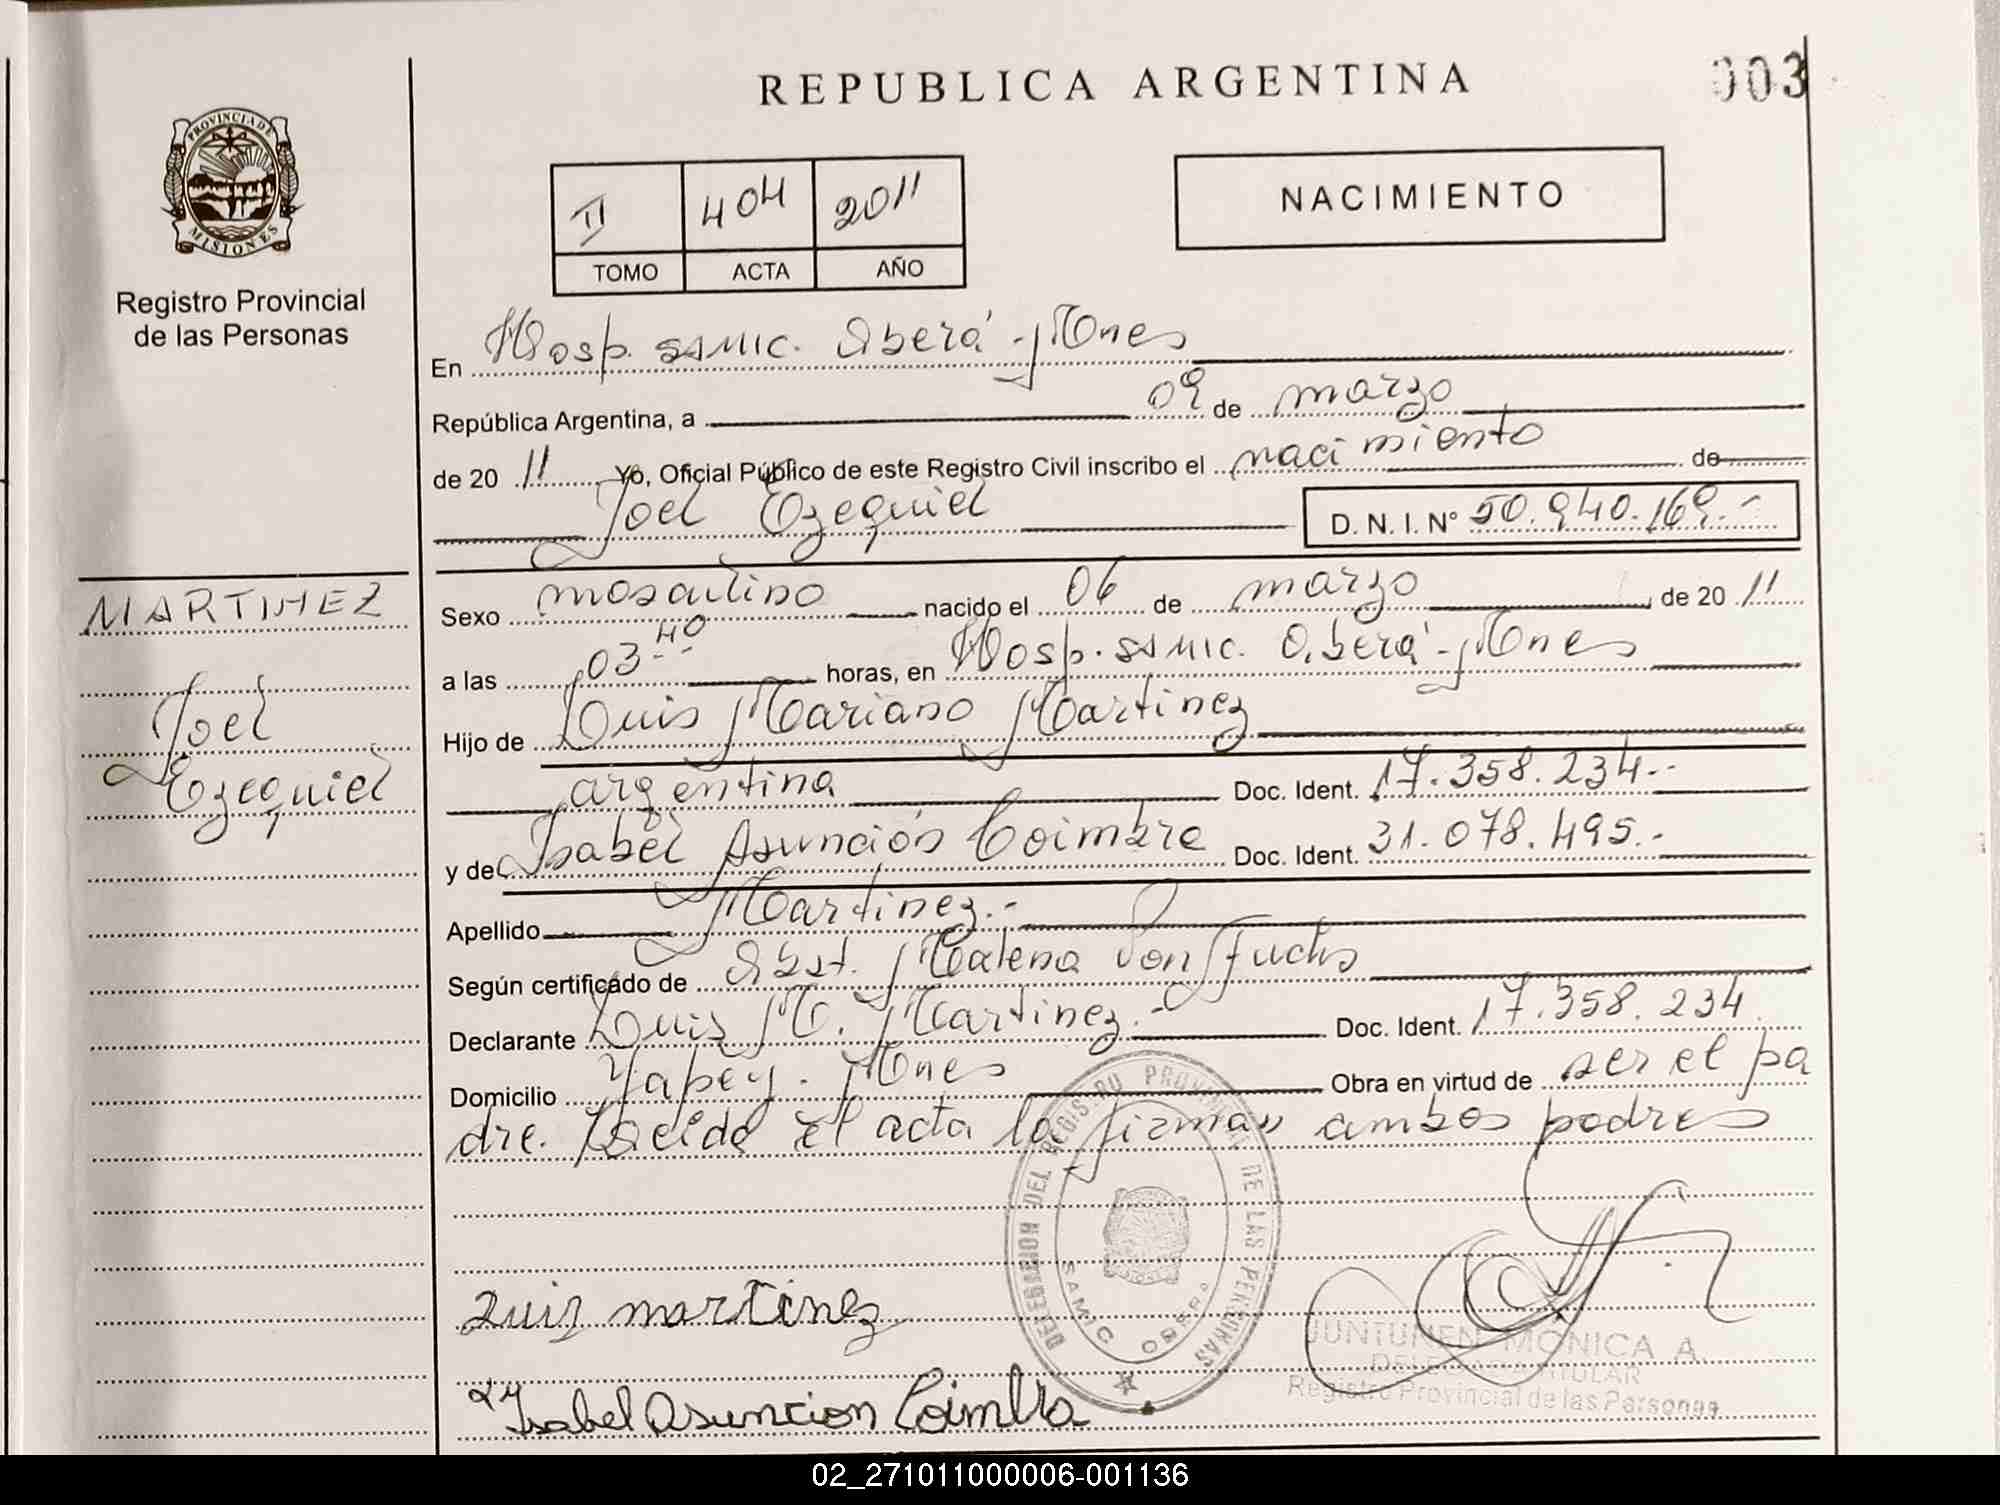 REPUBLICA ARGENTINA
003
PROVINCIA DE
MISIONES
Registro Provincial
de las Personas
II 404 2011
TOMO ACTA AÑO
NACIMIENTO
En Hosp. SAMIC. Oberá - Mnes
República Argentina, a 09 de marzo
de 20 11 Yo, Oficial Público de este Registro Civil inscribo el nacimiento de
Joel Ezequiel D. N. I. Nº 50.940.169.-
MARTINEZ
Joel
Ezequiel
Sexo masculino nacido el 06 de marzo de 20 11
a las 03 40 horas, en Hosp. SAMIC. Oberá - Mnes
Hijo de Luis Mariano Martinez
argentina Doc. Ident. 17.358.234.-
y de Isabel Asunción Coimbra Doc. Ident. 31.078.495.-
Apellido Martinez.-
Según certificado de Obst. Malena Von Fuchs
Declarante Luis M. Martinez.- Doc. Ident. 17.358.234
Domicilio Yapey. Mnes Obra en virtud de ser el pa
dre. Leida el acta la firman ambos padres
DELEGACION DEL REGISTRO PROVINCIAL DE LAS PERSONAS
SAMIC OBERA
Luis martinez
Isabel Asuncion Coimbra
JUNTUNEN MONICA A.
DELEGADA TITULAR
Registro Provincial de las Personas
02_271011000006-001136